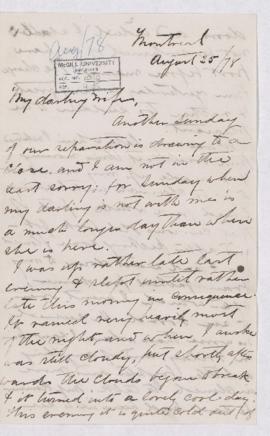 Aug/78
Montreal
August 25/78
McGILL UNIVERSITY
My darling Wife,
Another Sunday
of our separation is drawing to a
close and I am not in the
least sorry; for Sunday when
my darling is not with me is
a much longer day than when
she is here.
I was up rather late last
evening & slept until rather
late this morning in consequence.
It rained very heavily most
of the night, and when I awoke
was still cloudy, but shortly after
wards the clouds began to break
& it turned into a lovely cool day.
This evening it is quite cold